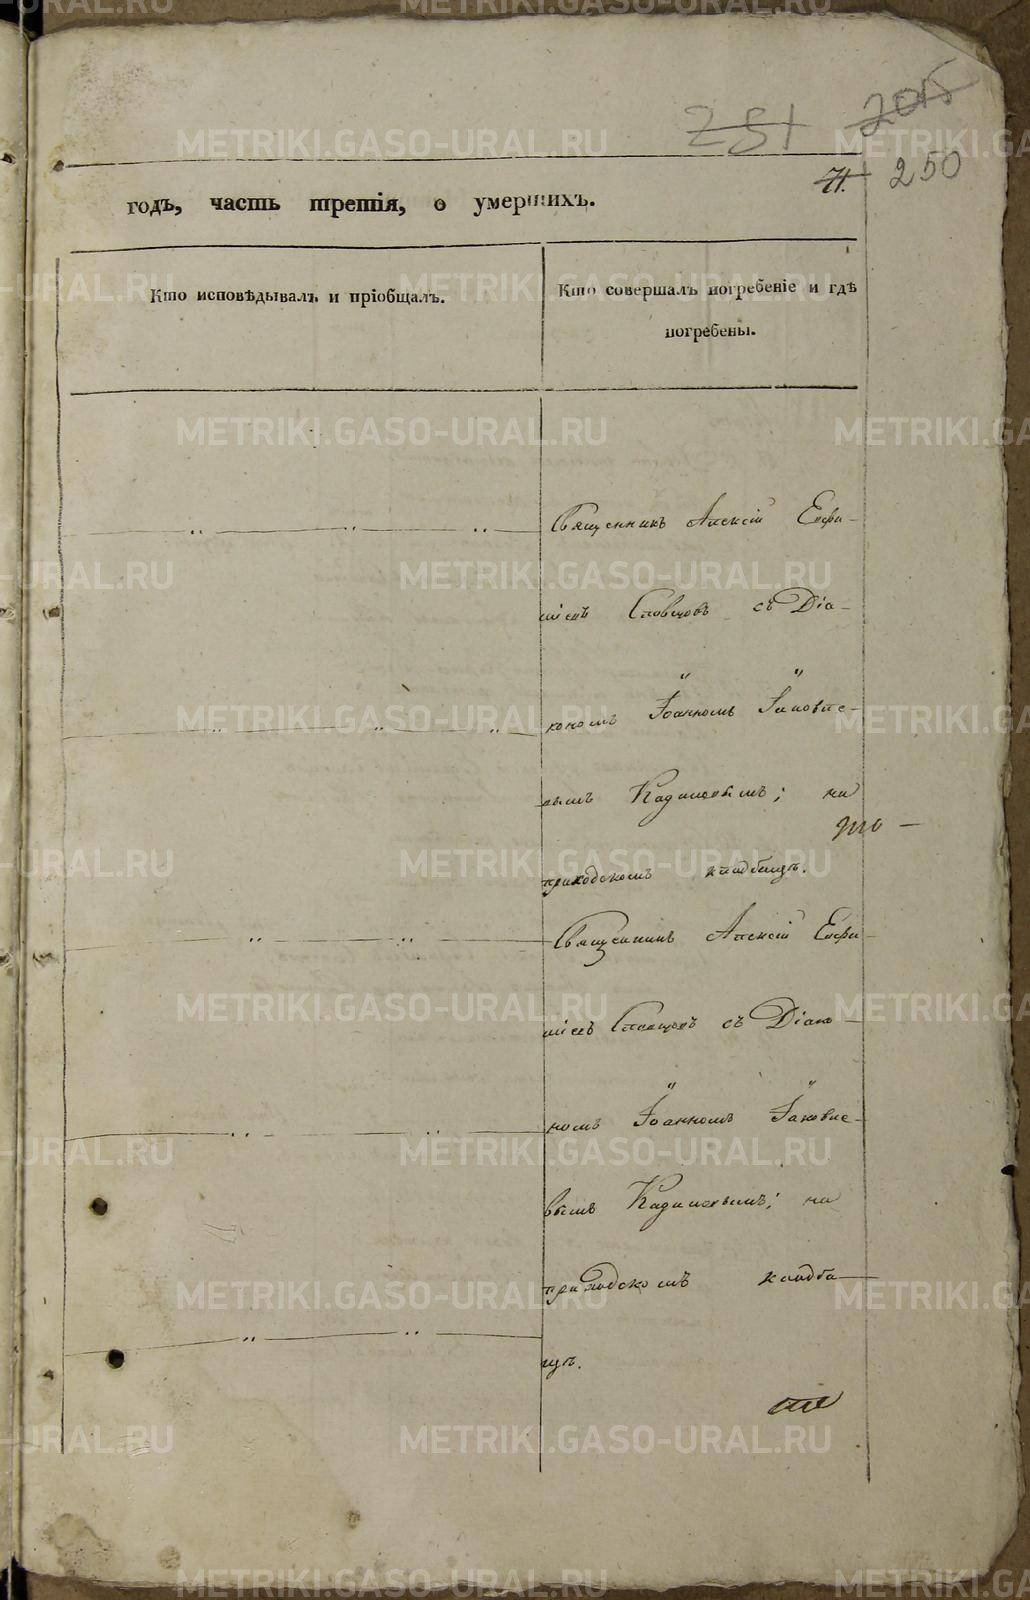 251 2015
71. 250
годъ, часть третія, о умершихъ.
Кто исповѣдывалъ и пріобщалъ.
Кто совершалъ погребеніе и гдѣ
погребены.
Священникъ Алексій Евфи-
міевъ Словцовъ съ Діа-
кономъ Іоанномъ Іаковле-
вымъ Кадилевымъ; на
приходскомъ кладбищѣ.
Священникъ Алексій Евфи-
міевъ Словцовъ съ Діако-
номъ Іоанномъ Іаковле-
вымъ Кадилевымъ; на
приходскомъ кладби-
щѣ.
METRIKI.GASO-URAL.RU